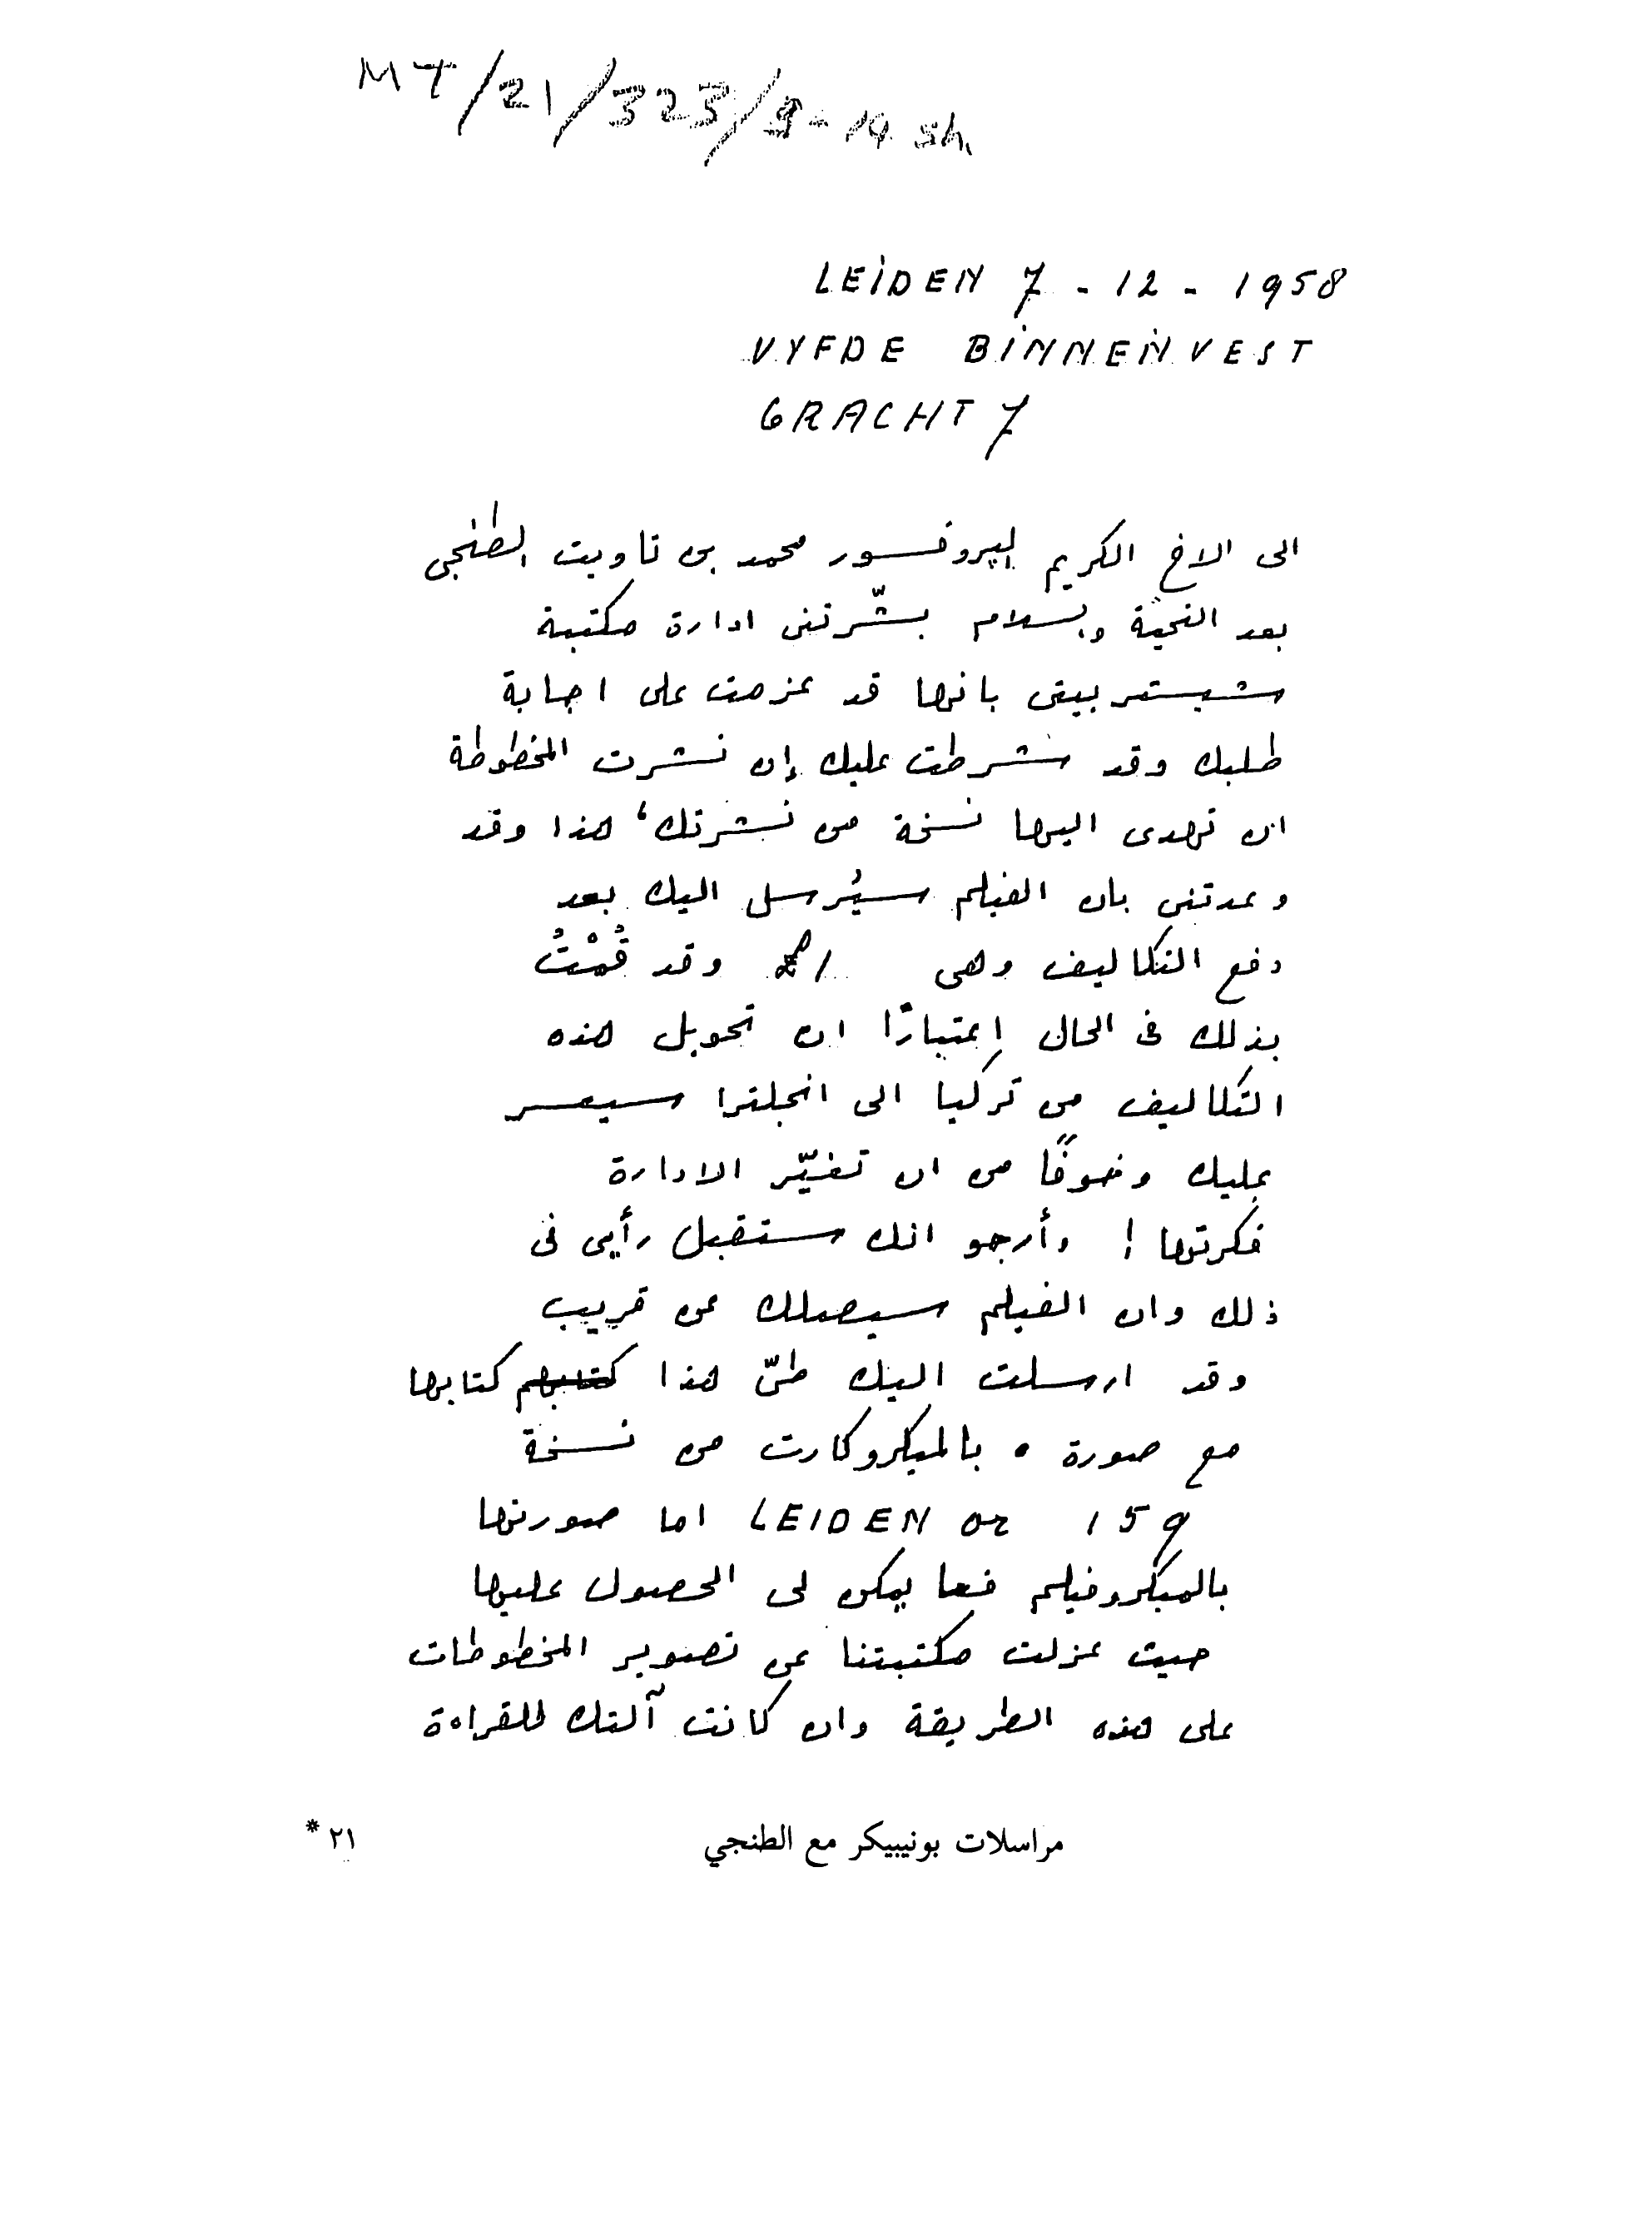 MT/21/323/9-14 sh.
LEIDEN 7-12-1958
VYFDE BINNENVEST
GRACHT 7
الى الاخ الكريم البروفسور محمد بن تاويت الطنجى
بعد التحيّة والسلام بشّرتنى ادارة مكتبة
شيستر بيتى بانها قد عزمت على اجابة
طلبك وقد شرطت عليك إن نشرت المخطوطة
ان تهدى اليها نسخة من نشرتك، هذا وقد
وعدتنى بان الفيلم سيُرسل اليك بعد
دفع التكاليف وهى 1 £ وقد قُمْتُ
بذلك فى الحال إعتبارًا ان تحويل هذه
التكاليف من تركيا الى انجلترا سيعسر
عليك وخوفًا من ان تغيّر الادارة
فكرتها! وأرجو انك ستقبل رأيى فى
ذلك وان الفيلم سيصلك عن قريب
وقد ارسلت اليك طىّ هذا كتابهم كتابها
مع صورة بالميكروكارت من نسخة
LEIDEN or 159 اما صورتها
بالميكروفيلم فما يمكن لى الحصول عليها
حيث عزلت مكتبتنا عن تصوير المخطوطات
على هذه الطريقة وان كانت آلتك للقراءة
مراسلات بونيبيكر مع الطنجي
٢١ *